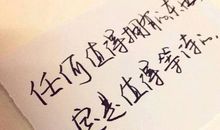 任何值得拥有的东西
定是值得等待的